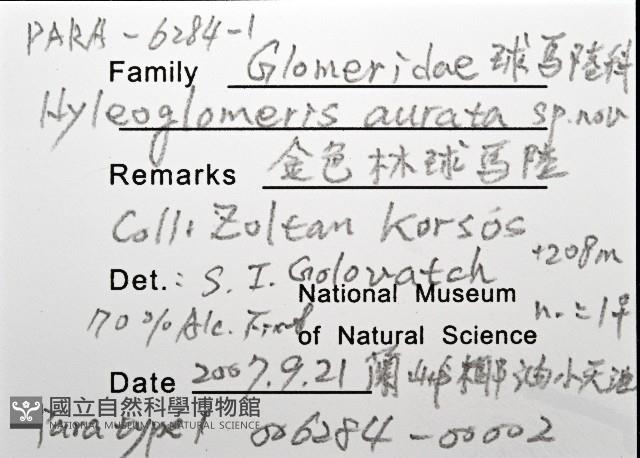 PARA-6284-1
Family Glomeridae 球馬陸科
Hyleoglomeris aurata sp. nov
Remarks 金色林球馬陸
Coll: Zoltan Korsós
Det.: S. I. Golovatch +208m
National Museum
70% Alc. n.=1♀
of Natural Science
Date 2007.9.21 蘭嶼椰油小天池
國立自然科學博物館
NATIONAL MUSEUM OF NATURAL SCIENCE
Paratype 1 006284-00002